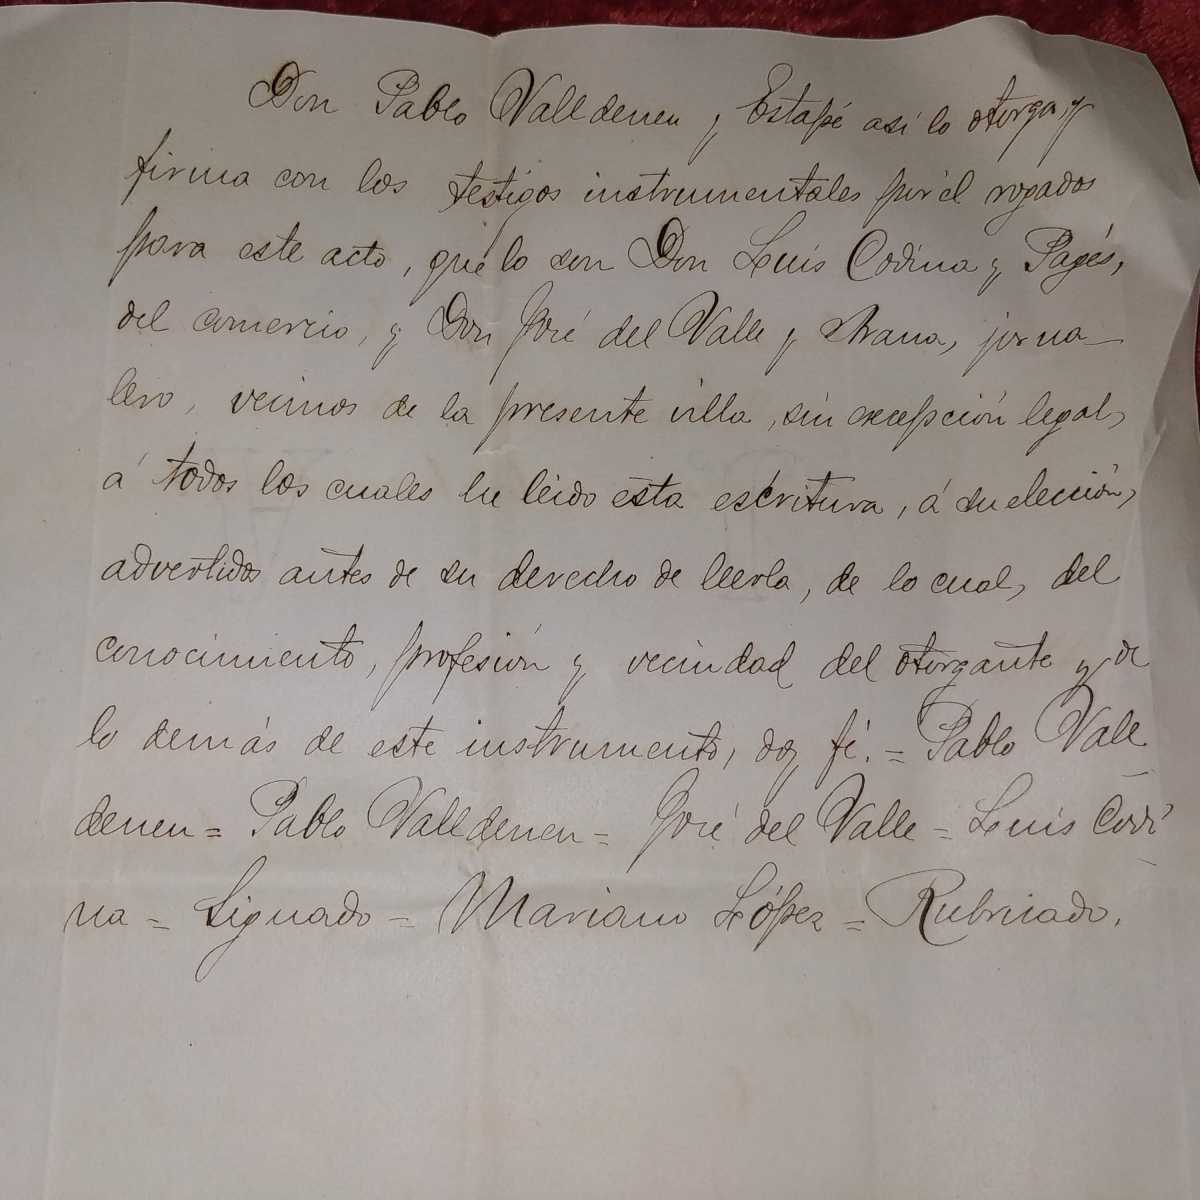 Don Pablo Valldeneu y Estapé así lo otorga, y
firma con los testigos instrumentales por él rogados
para este acto, que lo son Don Luis Codina y Pagés,
del comercio, y Don José del Valle y Arana, jorna-
lero, vecinos de la presente villa, sin excepción legal,
á todos los cuales he leido esta escritura, á su elección,
advertidos antes de su derecho de leerla, de lo cual, del
conocimiento, profesión y vecindad del otorgante y de
lo demás de este instrumento, doy fé. = Pablo Vall
deneu = Pablo Valldeneu = José del Valle = Luis Codi
na = Signado = Mariano López = Rubricado.